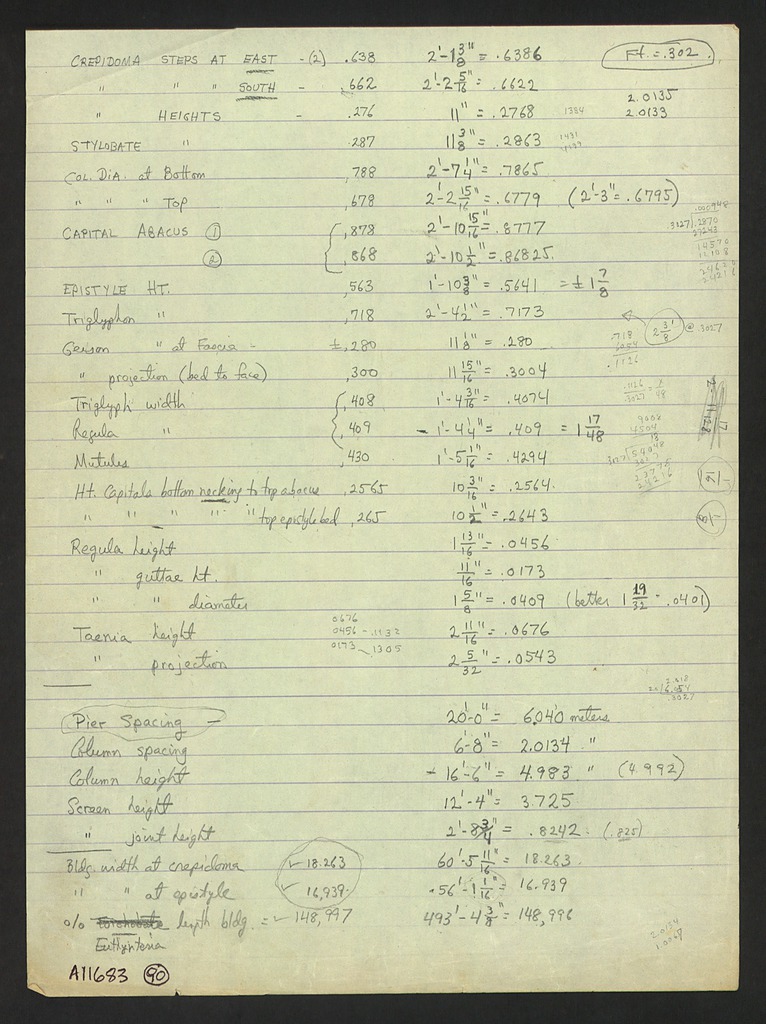 CREPIDOMA STEPS AT EAST - (2) .638 2'-1 3/8" = .6386 Ft. = .302
" " " SOUTH - .662 2'-2 5/16" = .6622
" HEIGHTS - .276 11" = .2768 1384 2.0135
2.0133
STYLOBATE " .287 11 3/8" = .2863 1431
COL. DIA. at Bottom .788 2'-7 1/4" = .7865
" " " TOP .678 2'-2 15/16" = .6779 (2'-3" = .6795)
CAPITAL ABACUS ① .878 2'-10 15/16" = .8777
② .868 2'-10 1/2" = .86825
EPISTYLE HT. .563 1'-10 3/8" = .5641 = ± 1 7/8
Triglyphon " .718 2'-4 1/2" = .7173 2 3/8' @ .3027
Geison " at Fascia - ±.280 11 1/8" = .280
" projection (bed to face) .300 11 15/16" = .3004
Triglyph width .408 1'-4 3/16" = .4074
Regula " .409 - 1'-4 1/4" = .409 = 1 17/48
Mutules .430 1'-5 1/16" = .4294
Ht. Capitals bottom necking to top abacus .2565 10 3/16" = .2564
" " " " " top epistyle bed .265 10 1/2" = .2643
Regula height 1 13/16" = .0456
" guttae ht. 11/16" = .0173
" " diameter 1 5/8" = .0409 (better 1 19/32" - .0401)
0676
Taenia height 0456 - .1132 2 11/16" = .0676
0173 .1305
" projection 2 5/32" = .0543
Pier Spacing - 20'-0" = 6.040 meters
Column spacing 6'-8" = 2.0134 "
Column height - 16'-6" = 4.983 " (4.992)
Screen height 12'-4" = 3.725
" joint height 2'-8 3/4" = .8242 (.825)
Bldg. width at crepidoma ✓ 18.263 60'-5 11/16" = 18.263
" " at epistyle ✓ 16.939 56'-1 1/16" = 16.939
o/o length bldg. = ✓ 148,997 493'-4 3/8" = 148,996
Euthynteria
2.0134
1.0067
A11683 90